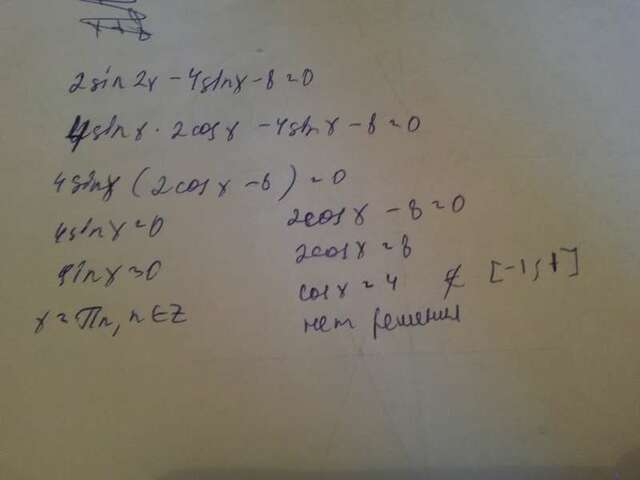 2sin2x - 4sinx - 8 = 0
4sinx · 2cosx - 4sinx - 8 = 0
4sinx (2cosx - 8) = 0
4sinx = 0 2cosx - 8 = 0
sinx = 0 2cosx = 8
x = πn, n ∈ Z cosx = 4 ∉ [-1; 1]
нет решения